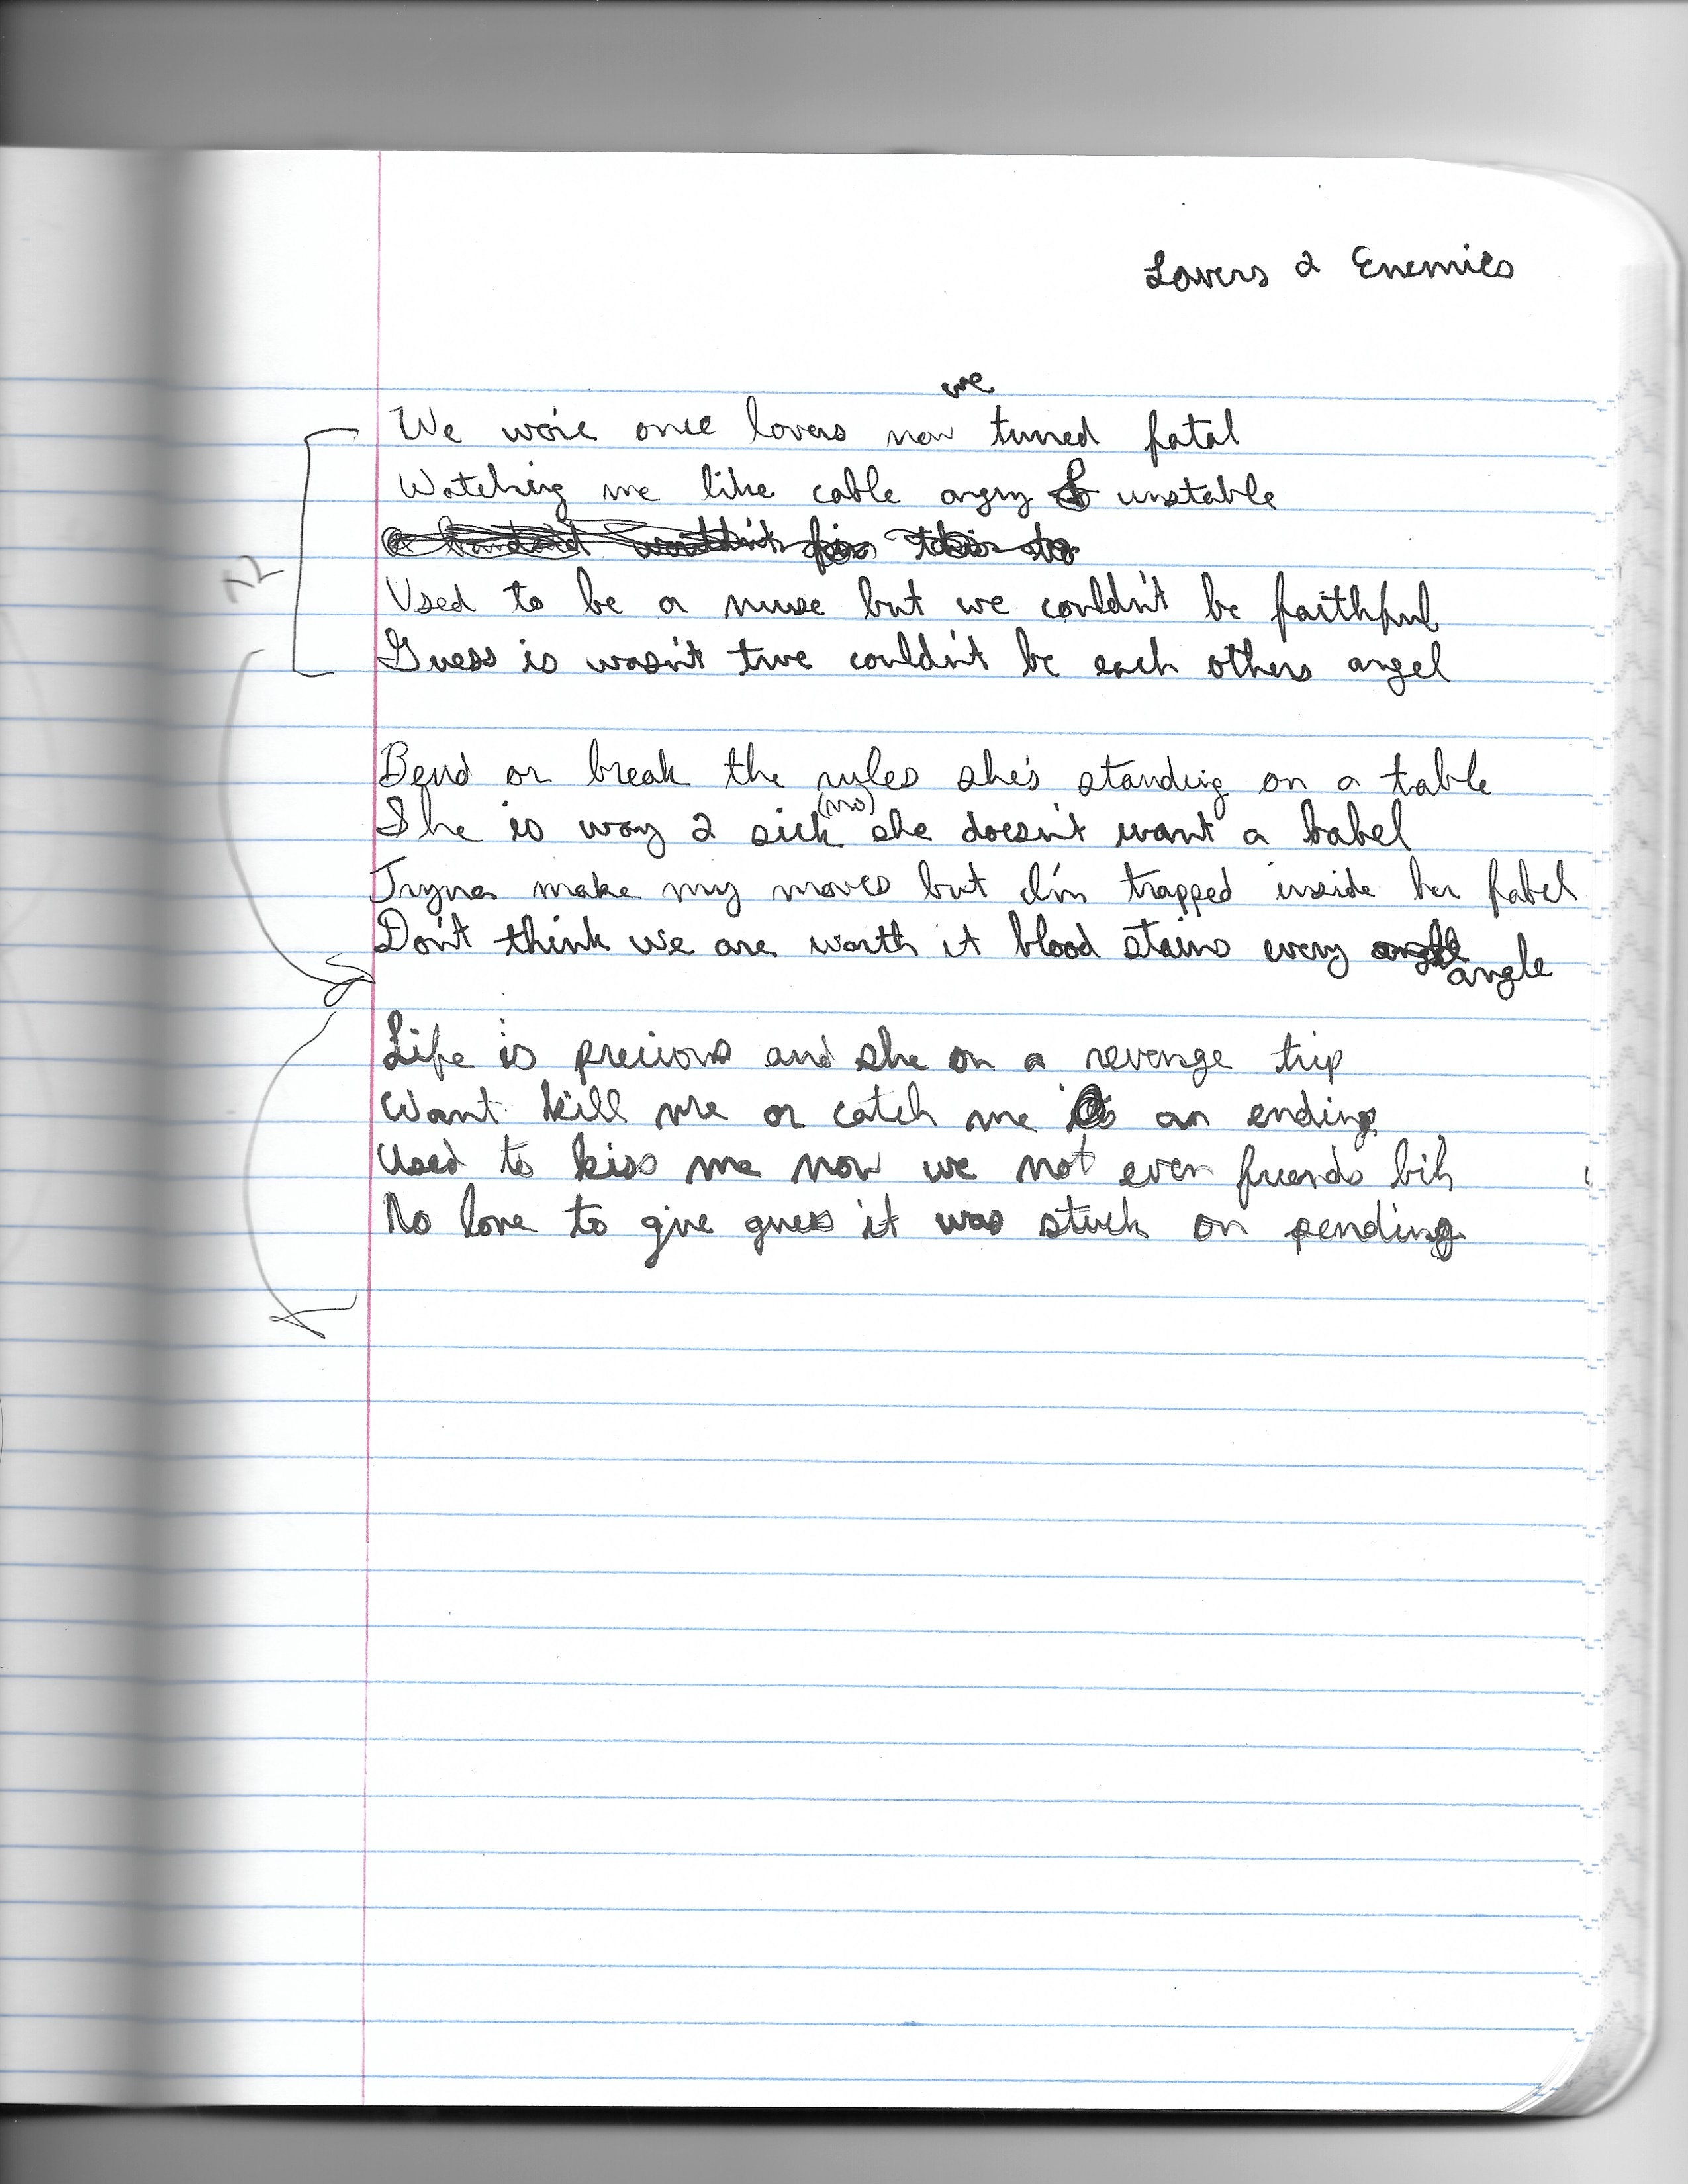 Lovers 2 Enemies
we
We were once lovers now turned fatal
Watching me like cable angry & unstable
Used to be a muse but we couldn't be faithful
Guess is wasn't true couldn't be each others angel
Bend or break the rules she's standing on a table
(no)
She is way 2 sick she doesn't want a babel
Tryna make my moves but I'm trapped inside her fabel
Don't think we are worth it blood stains every angle
Life is precious and she on a revenge trip
Want kill me or catch me an ending
Used to kiss me now we not even friends bih
No love to give guess it was stuck on pending